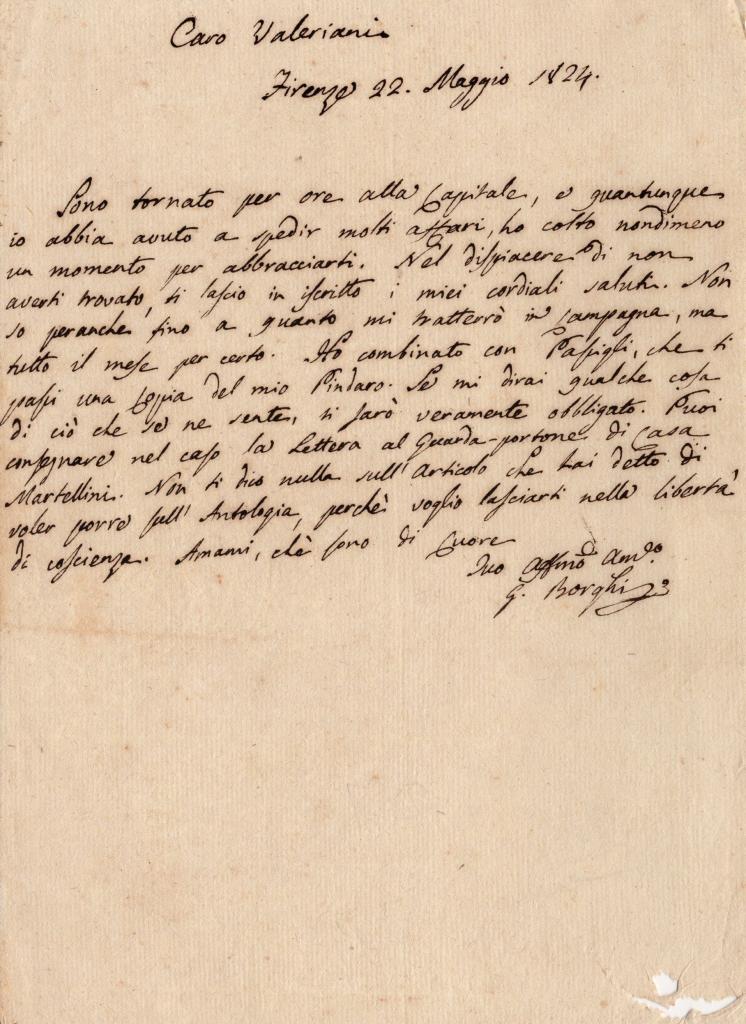 Caro Valeriani
Firenze 22. Maggio 1824.
Sono tornato per ore alla Capitale, e quantunque
io abbia avuto a spedir molti affari, ho colto nondimeno
un momento per abbracciarti. Nel dispiacere di non
averti trovato, ti lascio in iscritto i miei cordiali saluti. Non
so peranche fino a quanto mi tratterrò in Campagna, ma
tutto il mese per certo. Ho combinato con Passigli, che ti
passi una Copia del mio Pindaro. Se mi dirai qualche cosa
di ciò che se ne sente, ti sarò veramente obbligato. Puoi
consegnare nel caso la Lettera al Guarda-portone di Casa
Martellini. Non ti dico nulla sull' Articolo che hai detto di
voler porre sull' Antologia, perchè voglio lasciarti nella libertà
di coscienza. Amami, chè sono di Cuore
Tuo affmo Amco.
G. Borghi